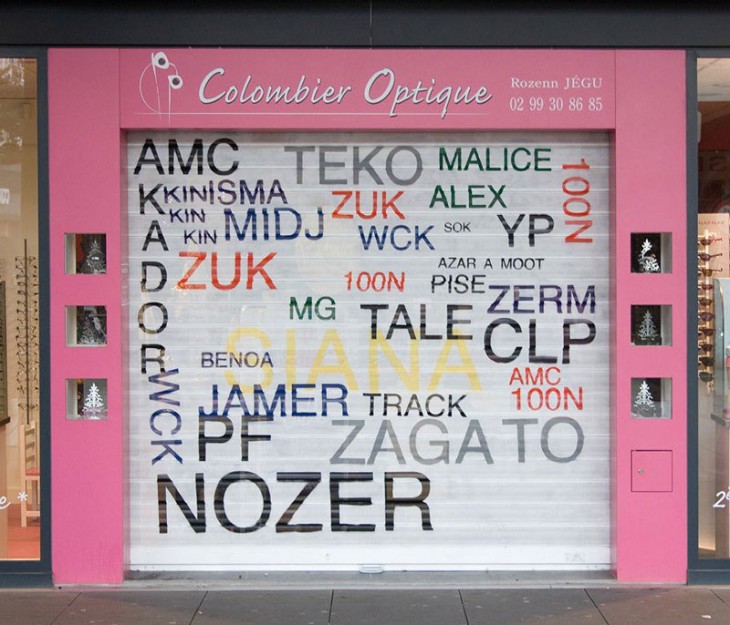 Colombier Optique
Rozenn JÉGU
02 99 30 86 85
AMC
TEKO
MALICE
100N
KADOR
KINISMA
KIN
KIN
MIDJ
ZUK
ALEX
WCK
SOK
YP
ZUK
100N
AZAR A MOOT
PISE
ZERM
MG
TALE
CLP
SIANA
BENOA
AMC
100N
WCK
JAMER
TRACK
PF
ZAGATO
NOZER
e *